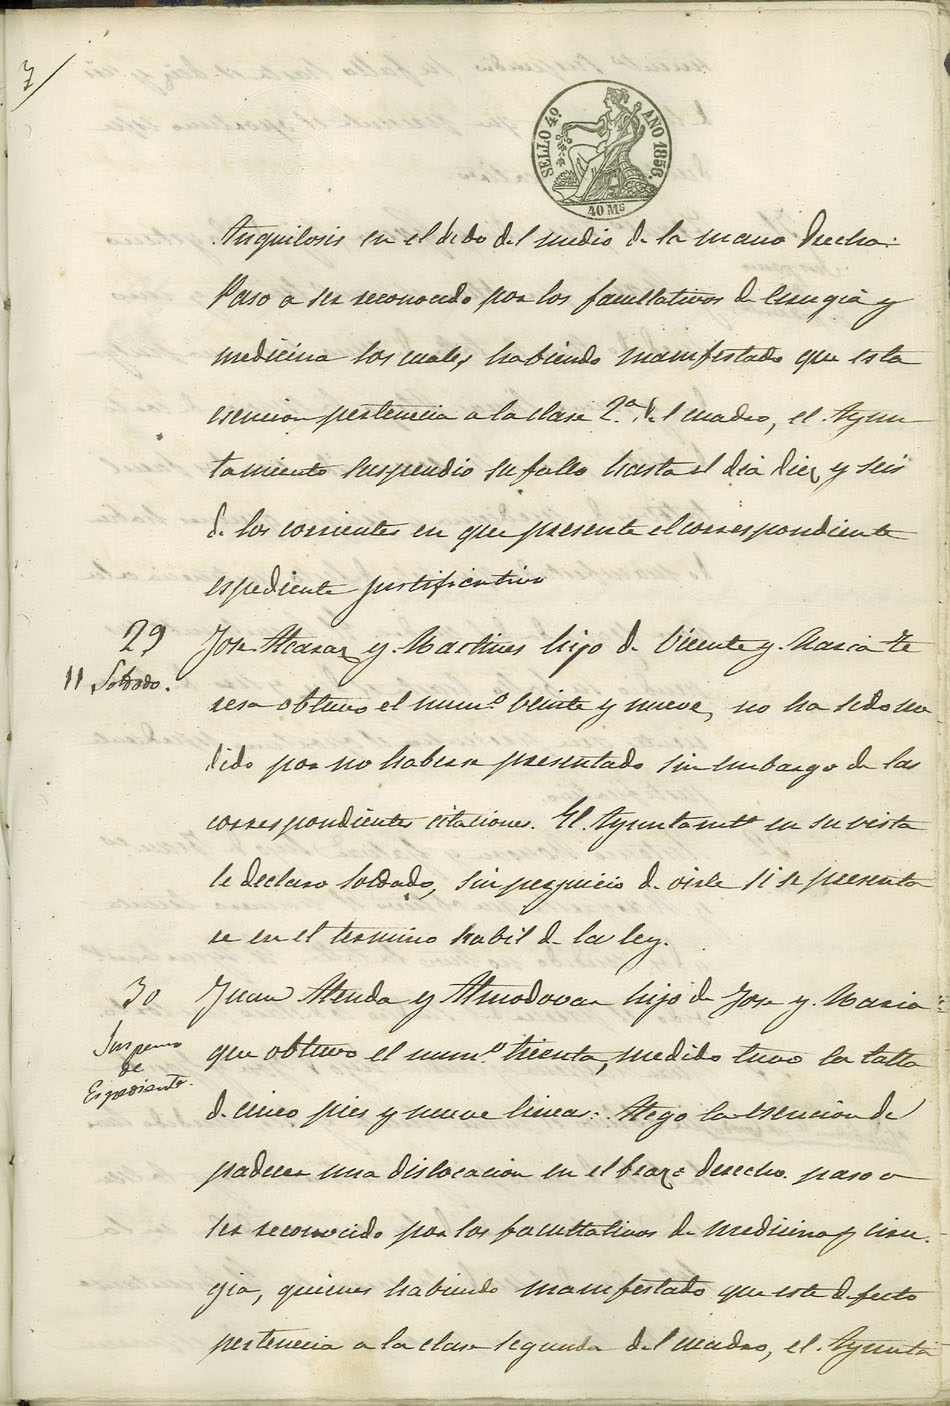 7
SELLO 4º AÑO 1856.
40 Ms
Anquilosis en el dedo del medio de la mano drecha:
Paso a ser reconocido por los facultativos de Cirugia y
medicina los cuales, habiendo manifestado que esta
esencion pertenecia a la clase 2.ª del cuadro, el Ayun
tamiento suspendio su fallo hasta el dia diez y seis
de los corrientes en que presente el correspondiente
espediente justificativo
29
11 Soldado.
Jose Alcaraz y Martines hijo de Vicente y Maria Te
resa obtuvo el num.º veinte y nueve, no ha sido me
dido por no haberse presentado sin embargo de las
correspondientes citaciones. El Ayuntamto en su vista
le declaro soldado, sin perjuicio de oirle si se presenta
se en el termino habil de la ley.
30
Suspenso
de
Espediente.
Juan Alenda y Almodovar hijo de Jose y Maria
que obtuvo el num.º treinta, medido tuvo la talla
de cinco pies y nueve lineas: Alego la esencion de
padecer una dislocacion en el brazo derecho. paso a
ser reconocido por los facultativos de medicina y ciru-
gia, quienes habiendo manifestado que este defecto
pertenecia a la clase segunda del cuadro, el Ayunta